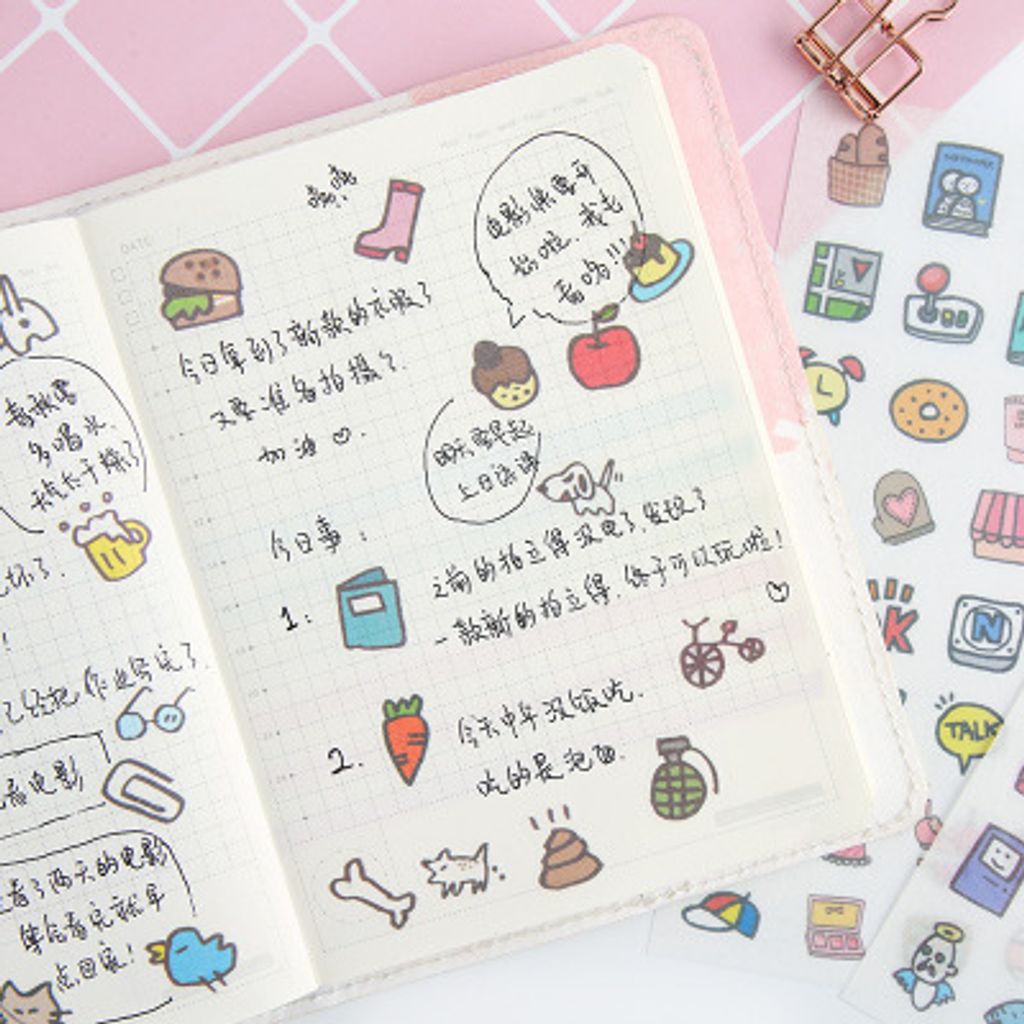 多喝水.
天气太干燥了
坏了.
!
已经把作业写完了.
看电影
看了两天的电影
点回家!
DATE
今日拿到了新款的衣服了
又要准备拍摄了.
加油♡.
今日事:
1:
之前的拍立得没电了,发现了
一款新的拍立得.终于可以玩啦!
♡
2.
今天中午没饭吃.
吃的是泡面.
明天要早起
上日语课
电影票要开
始啦.我去
看哟!!!
N
TALK